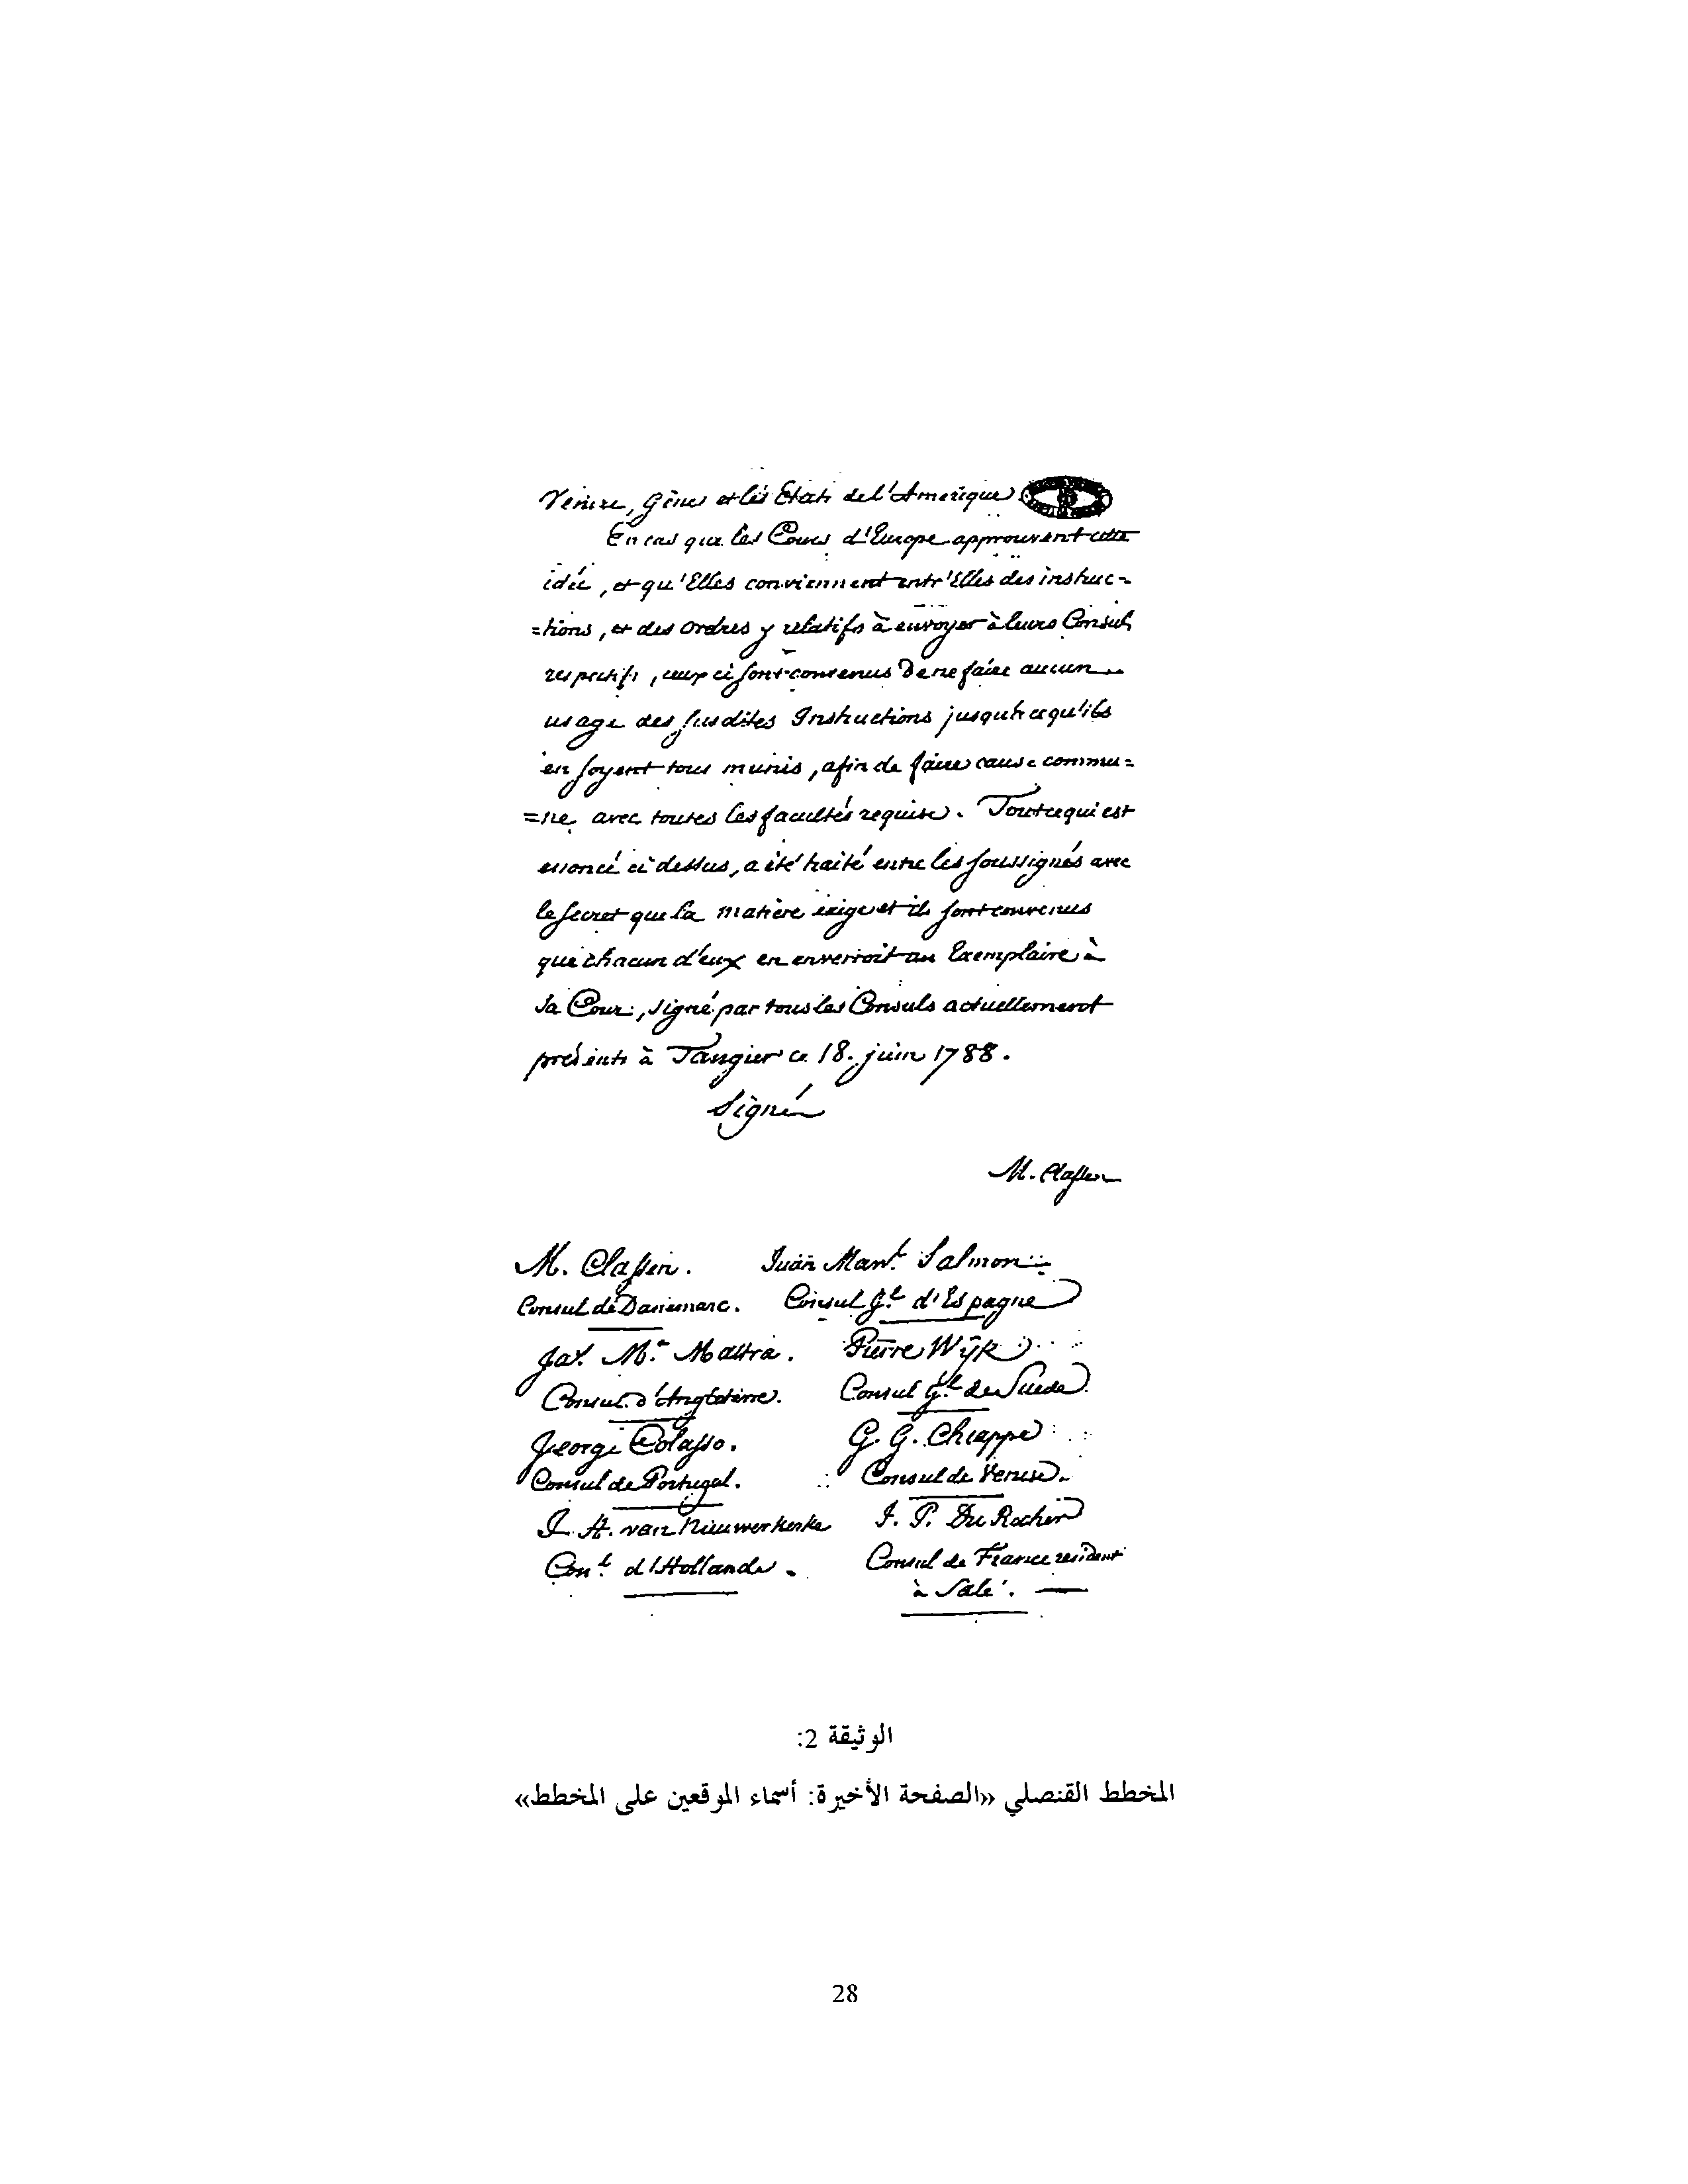 Venise, Gênes et les Etats de l'Amerique.
En cas que les Cours d'Europe approuvent cette
idée, et qu'Elles conviennent entr'Elles des instruc=
=tions, et des ordres y relatifs à envoyer à leurs Consuls
respectifs, ceux ci sont convenus de ne faire aucun
usage des susdites Instructions jusqu'à ce qu'ils
en soyent tous munis, afin de faire cause commu=
=ne avec toutes les facultés requises. Tout ce qui est
enoncé ci dessus, a été traité entre les soussignés avec
le secret que la matière exige et ils sont convenus
que chacun d'eux en enverroit un Exemplaire à
sa Cour, signé par tous les Consuls actuellement
présents à Tangier ce 18. juin 1788.
Signé
M. Classen
M. Classen. Juan Man.l Salmon
Consul de Danemarc. Consul G.l d'Espagne
Ja.s M.a Matra. Pierre Wÿk
Consul d'Angleterre. Consul G.l de Suede.
George Colasso. G. G. Chiappe
Consul de Portugal. Consul de Venise.
J. A. van Nieuwerkerke J. P. Du Rocher
Con.l d'Hollande. Consul de France resident
à Salé.
الوثيقة 2:
المخطط القنصلي «الصفحة الأخيرة: أسماء الموقعين على المخطط»
28